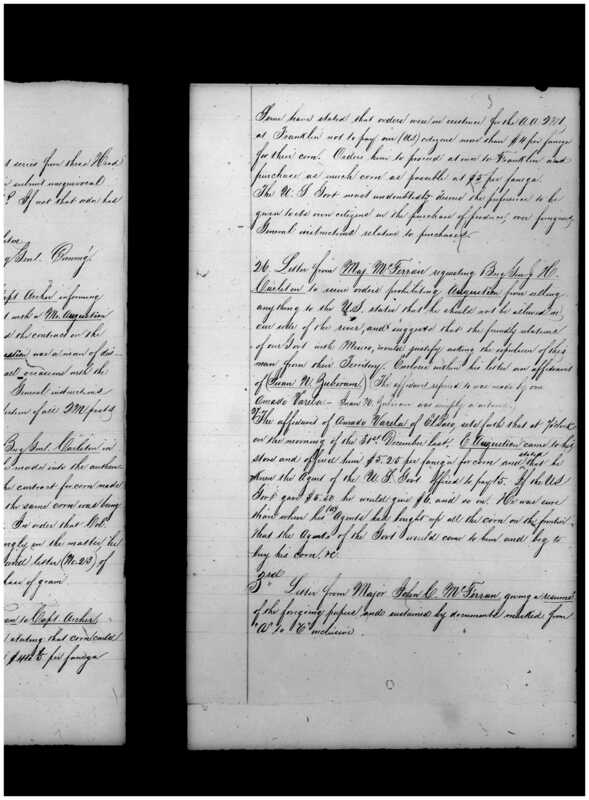 t series from three Hund
r submit unequivocal
? If not that order has
g Genl. Cuming.
Capt Archer informing
t with a Mr. Augustian
d the contract on the
ustian was a man of dis-
all occasions with the
General instructions
Big Genl. Carleton in
l made into the authen
he contract for corn made
the same corn was being
In order that Col.
ngly in the matter, he
letter (No. 23) of
hase of grain
an to Capt. Archer
stating that corn could
per fanega
Some have stated that orders were in existence for the A.A. Q.M.
at Franklin not to pay our (U.S.) citizens more than $4 per fanega
for their corn. Orders him to proceed at once to Franklin and
purchase as much corn as possible at $5 per fanega.
The U. S. Govt most undoubtedly deems the preference to be
given to its own citizens in the purchase of produce, over foreigners,
General instructions relative to purchases.
26. Letter from Maj. McFerran requesting Brig Genl J. H.
Carleton to issue orders prohibiting Augustian from selling
anything to the U.S. states that he should not be allowed on
our side of the river, and suggests that the friendly relations
of our Govt with Mexico, would justify asking the expulsion of this
man from their Territory. Encloses within his letter an affidavit
of (Juan N. Zubrian.) (The affidavit referred to was made by one
Amado Varela - Juan N. Zubrian was simply a witness.)
The affidavit of Amado Varela of El Paso, sets forth that at 7 o'clock
on the morning of the 31st December last, C. Augustian came to his
store and offered him $5.25 per fanega for corn and stated that he
knew the Agent of the U. S. Govt offered to pay $5. If the U.S.
Govt gave $5.50 he would give $6. and so on. He was sure
that when his (A's) Agents had bought up all the corn on the frontier
that the Agents of the Govt would come to him and beg to
buy his corn, &c.
3rd
Letter from Major John C. McFerran, giving a resumé
of the foregoing papers and sustained by documents marked from
"A" to "E" inclusive.